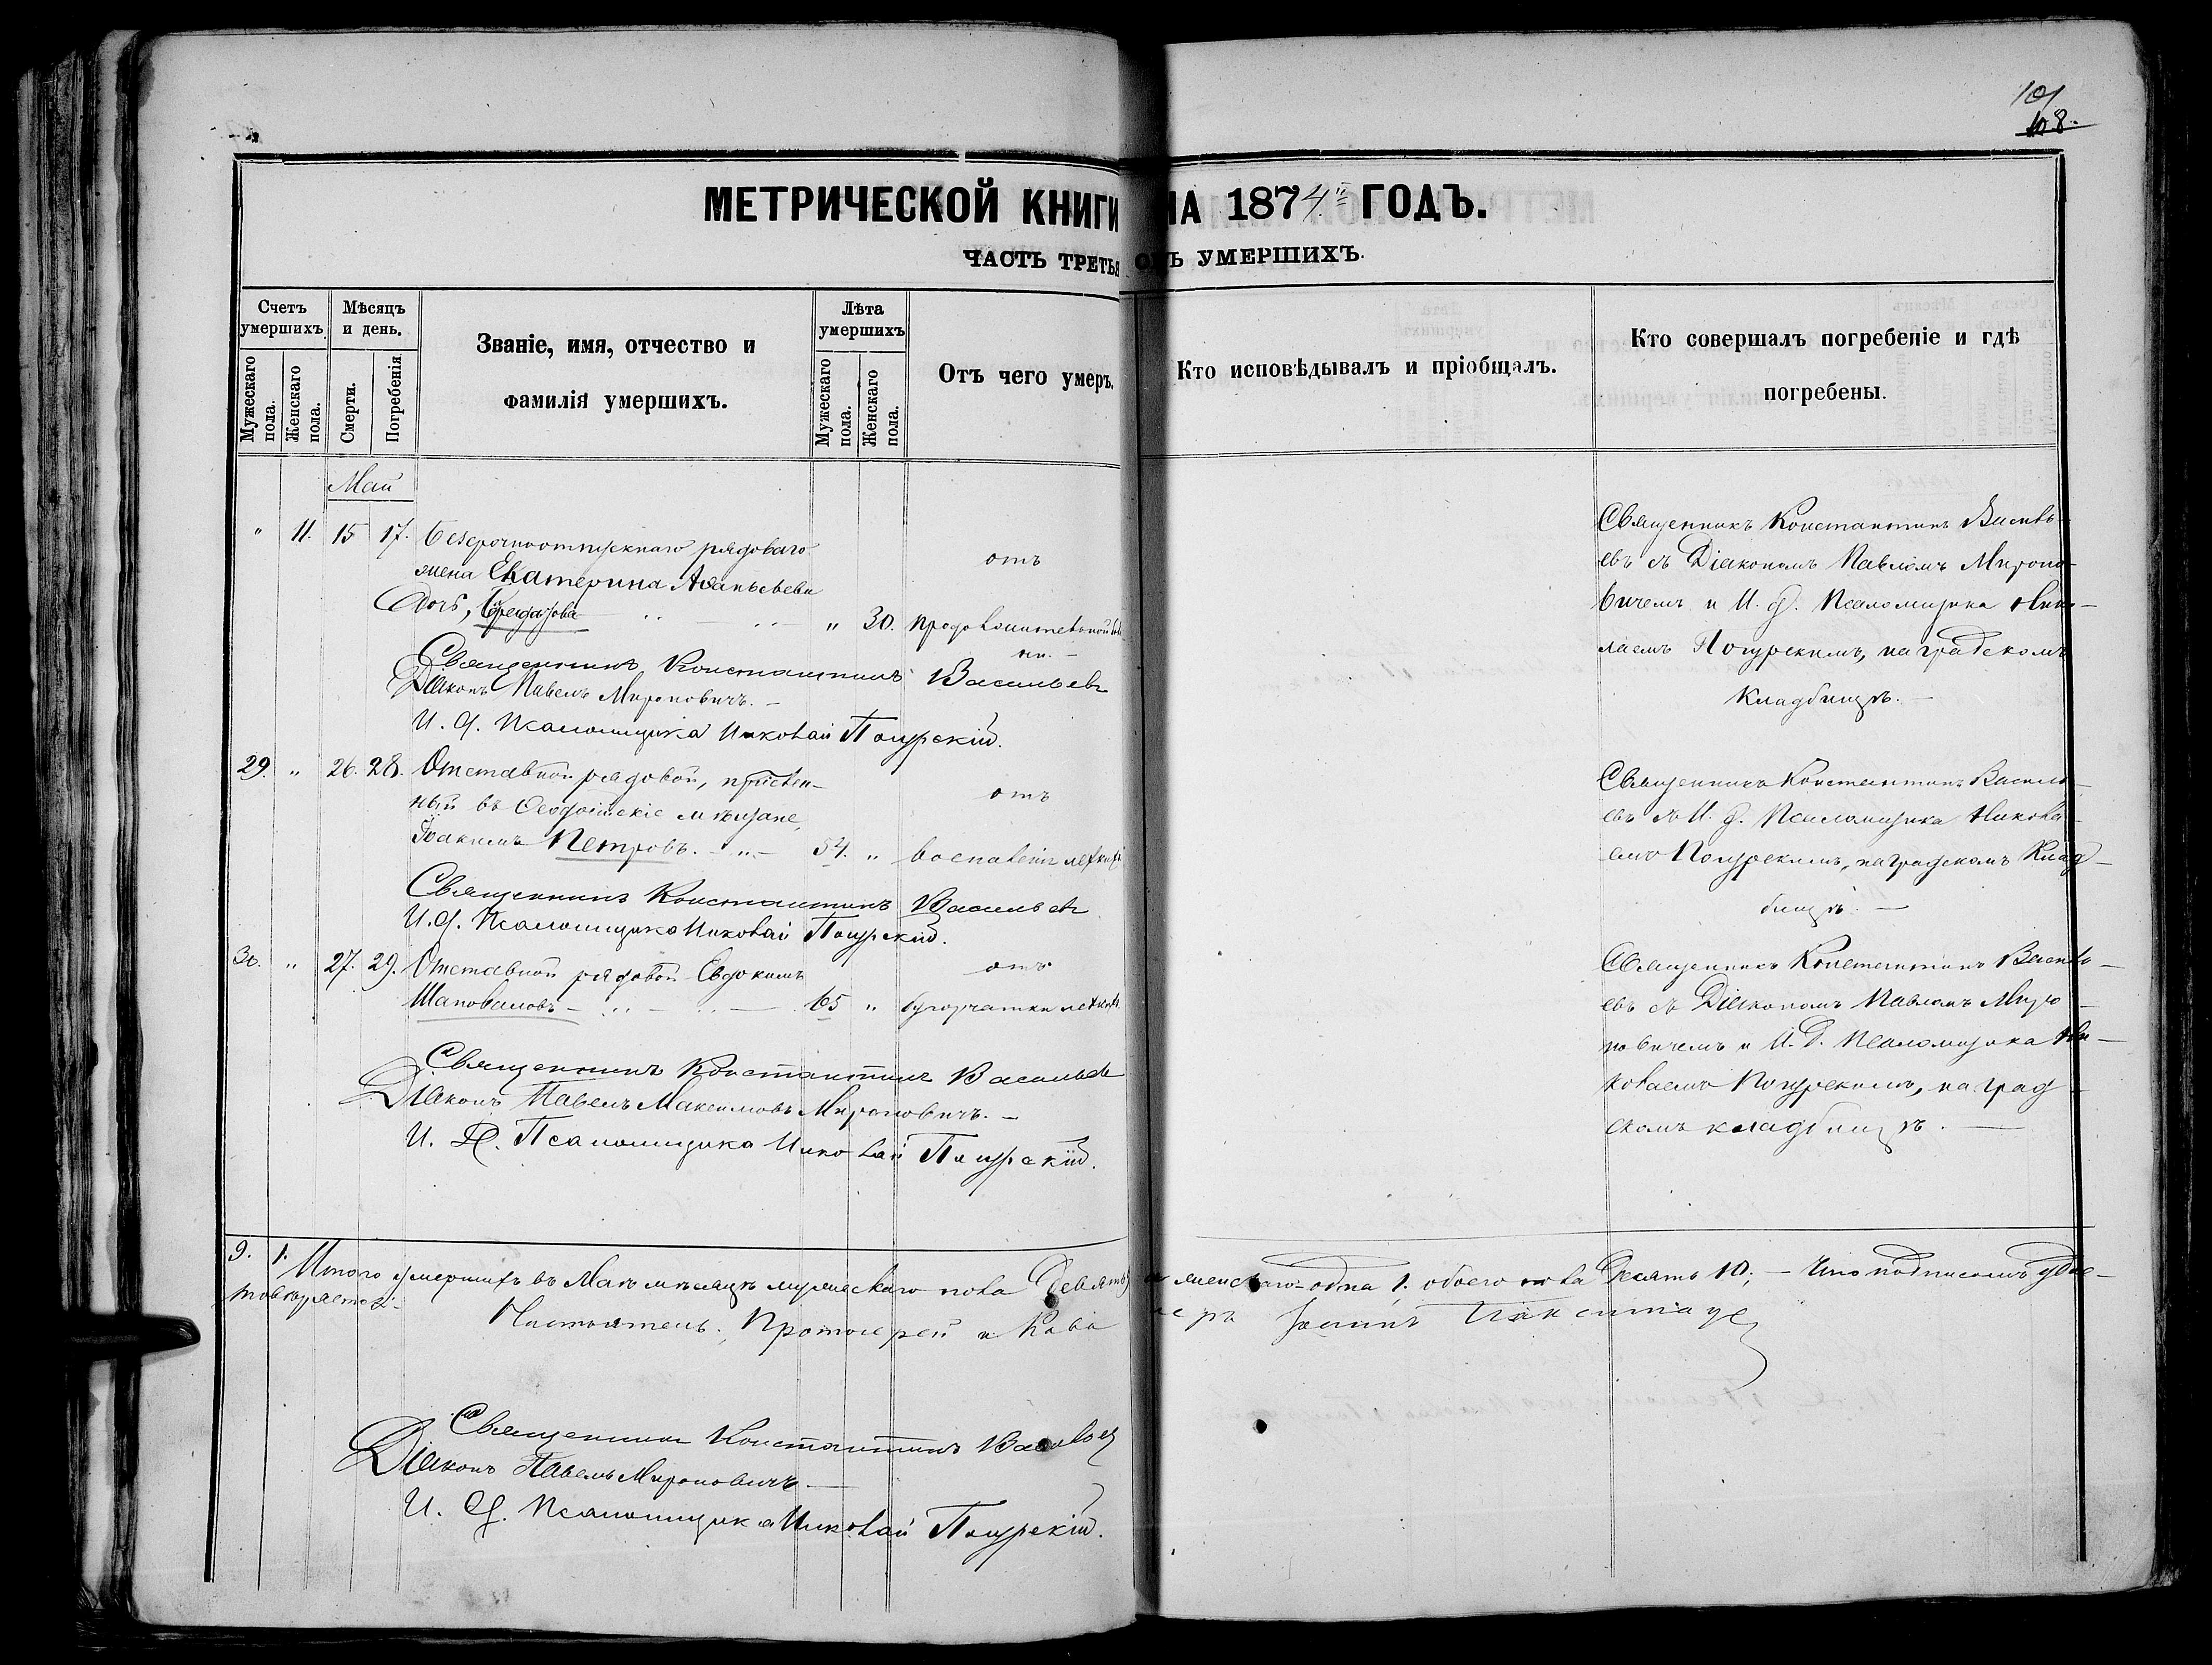 101
108.
МЕТРИЧЕСКОЙ КНИГИ НА 1874й ГОДЪ.
ЧАСТЬ ТРЕТЬЯ О УМЕРШИХЪ.
Счетъ умершихъ.
Мужескаго пола.
Женскаго пола.
Мѣсяцъ и день.
Смерти.
Погребенія
Званіе, имя, отчество и
фамилія умершихъ.
Лѣта умершихъ
Мужескаго пола.
Женскаго пола.
Отъ чего умеръ.
Кто исповѣдывалъ и пріобщалъ.
Кто совершалъ погребеніе и гдѣ
погребены.
Май
" 11. 15 17. Безсрочноотпускнаго рядоваго
жена Екатерина Аѳанасьева
отъ
дочь, — " 30. продолжительной
Священникъ Константинъ Васильевъ
Діаконъ Павелъ Мироновичъ. —
И. д. Псаломщика Николай Пощурскій.
Священникъ Константинъ Василь-
евъ съ Діакономъ Павломъ Мироно-
вичемъ и И. д. Псаломщика Нико-
лаемъ на градскомъ
кладбищѣ. —
29. " 26. 28. Отставной рядовой, приписан-
ный въ Ѳеодосійскіе мѣщане,
отъ
Іоакимъ Петровъ. — " — 54. " воспаленія легкихъ
Священникъ Константинъ Васильевъ
И. д. Псаломщика Николай
Священникъ Константинъ Василь-
евъ съ И. д. Псаломщика Никола-
емъ на градскомъ клад-
бищѣ. —
30. " 27. 29. Отставной рядовой Евдокимъ
отъ
Шаповаловъ — 65 " бугорчатки легкихъ
Священникъ Константинъ Васильевъ
Діаконъ Павелъ Максимовъ Мироновичъ. —
И. Д. Псаломщика Николай
Священникъ Константинъ Василь-
евъ съ Діакономъ Павломъ Миро-
новичемъ и И. Д. Псаломщика Ни-
колаемъ на град-
скомъ кладбищѣ. —
9. 1. Итого умершихъ въ Маѣ мѣсяцѣ мужескаго пола Девять, женскаго-одна 1; обоего пола Десять 10; — Что подписомъ удос-
товѣряется: —
Настоятель, Протоіерей и Кава леръ Іоаннъ
Священникъ Константинъ Васильевъ
Діаконъ Павелъ Мироновичъ —
И. д. Псаломщика Николай